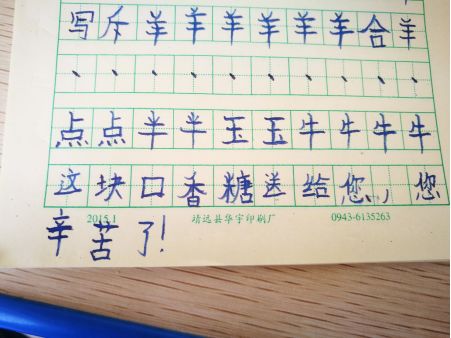 写斥羊羊羊羊羊羊合羊
丶丶丶丶丶丶丶丶丶丶
点点半半玉玉牛牛牛牛
这块口香糖送给您，您
2015.1 靖远县华宇印刷厂 0943-6135263
辛苦了！